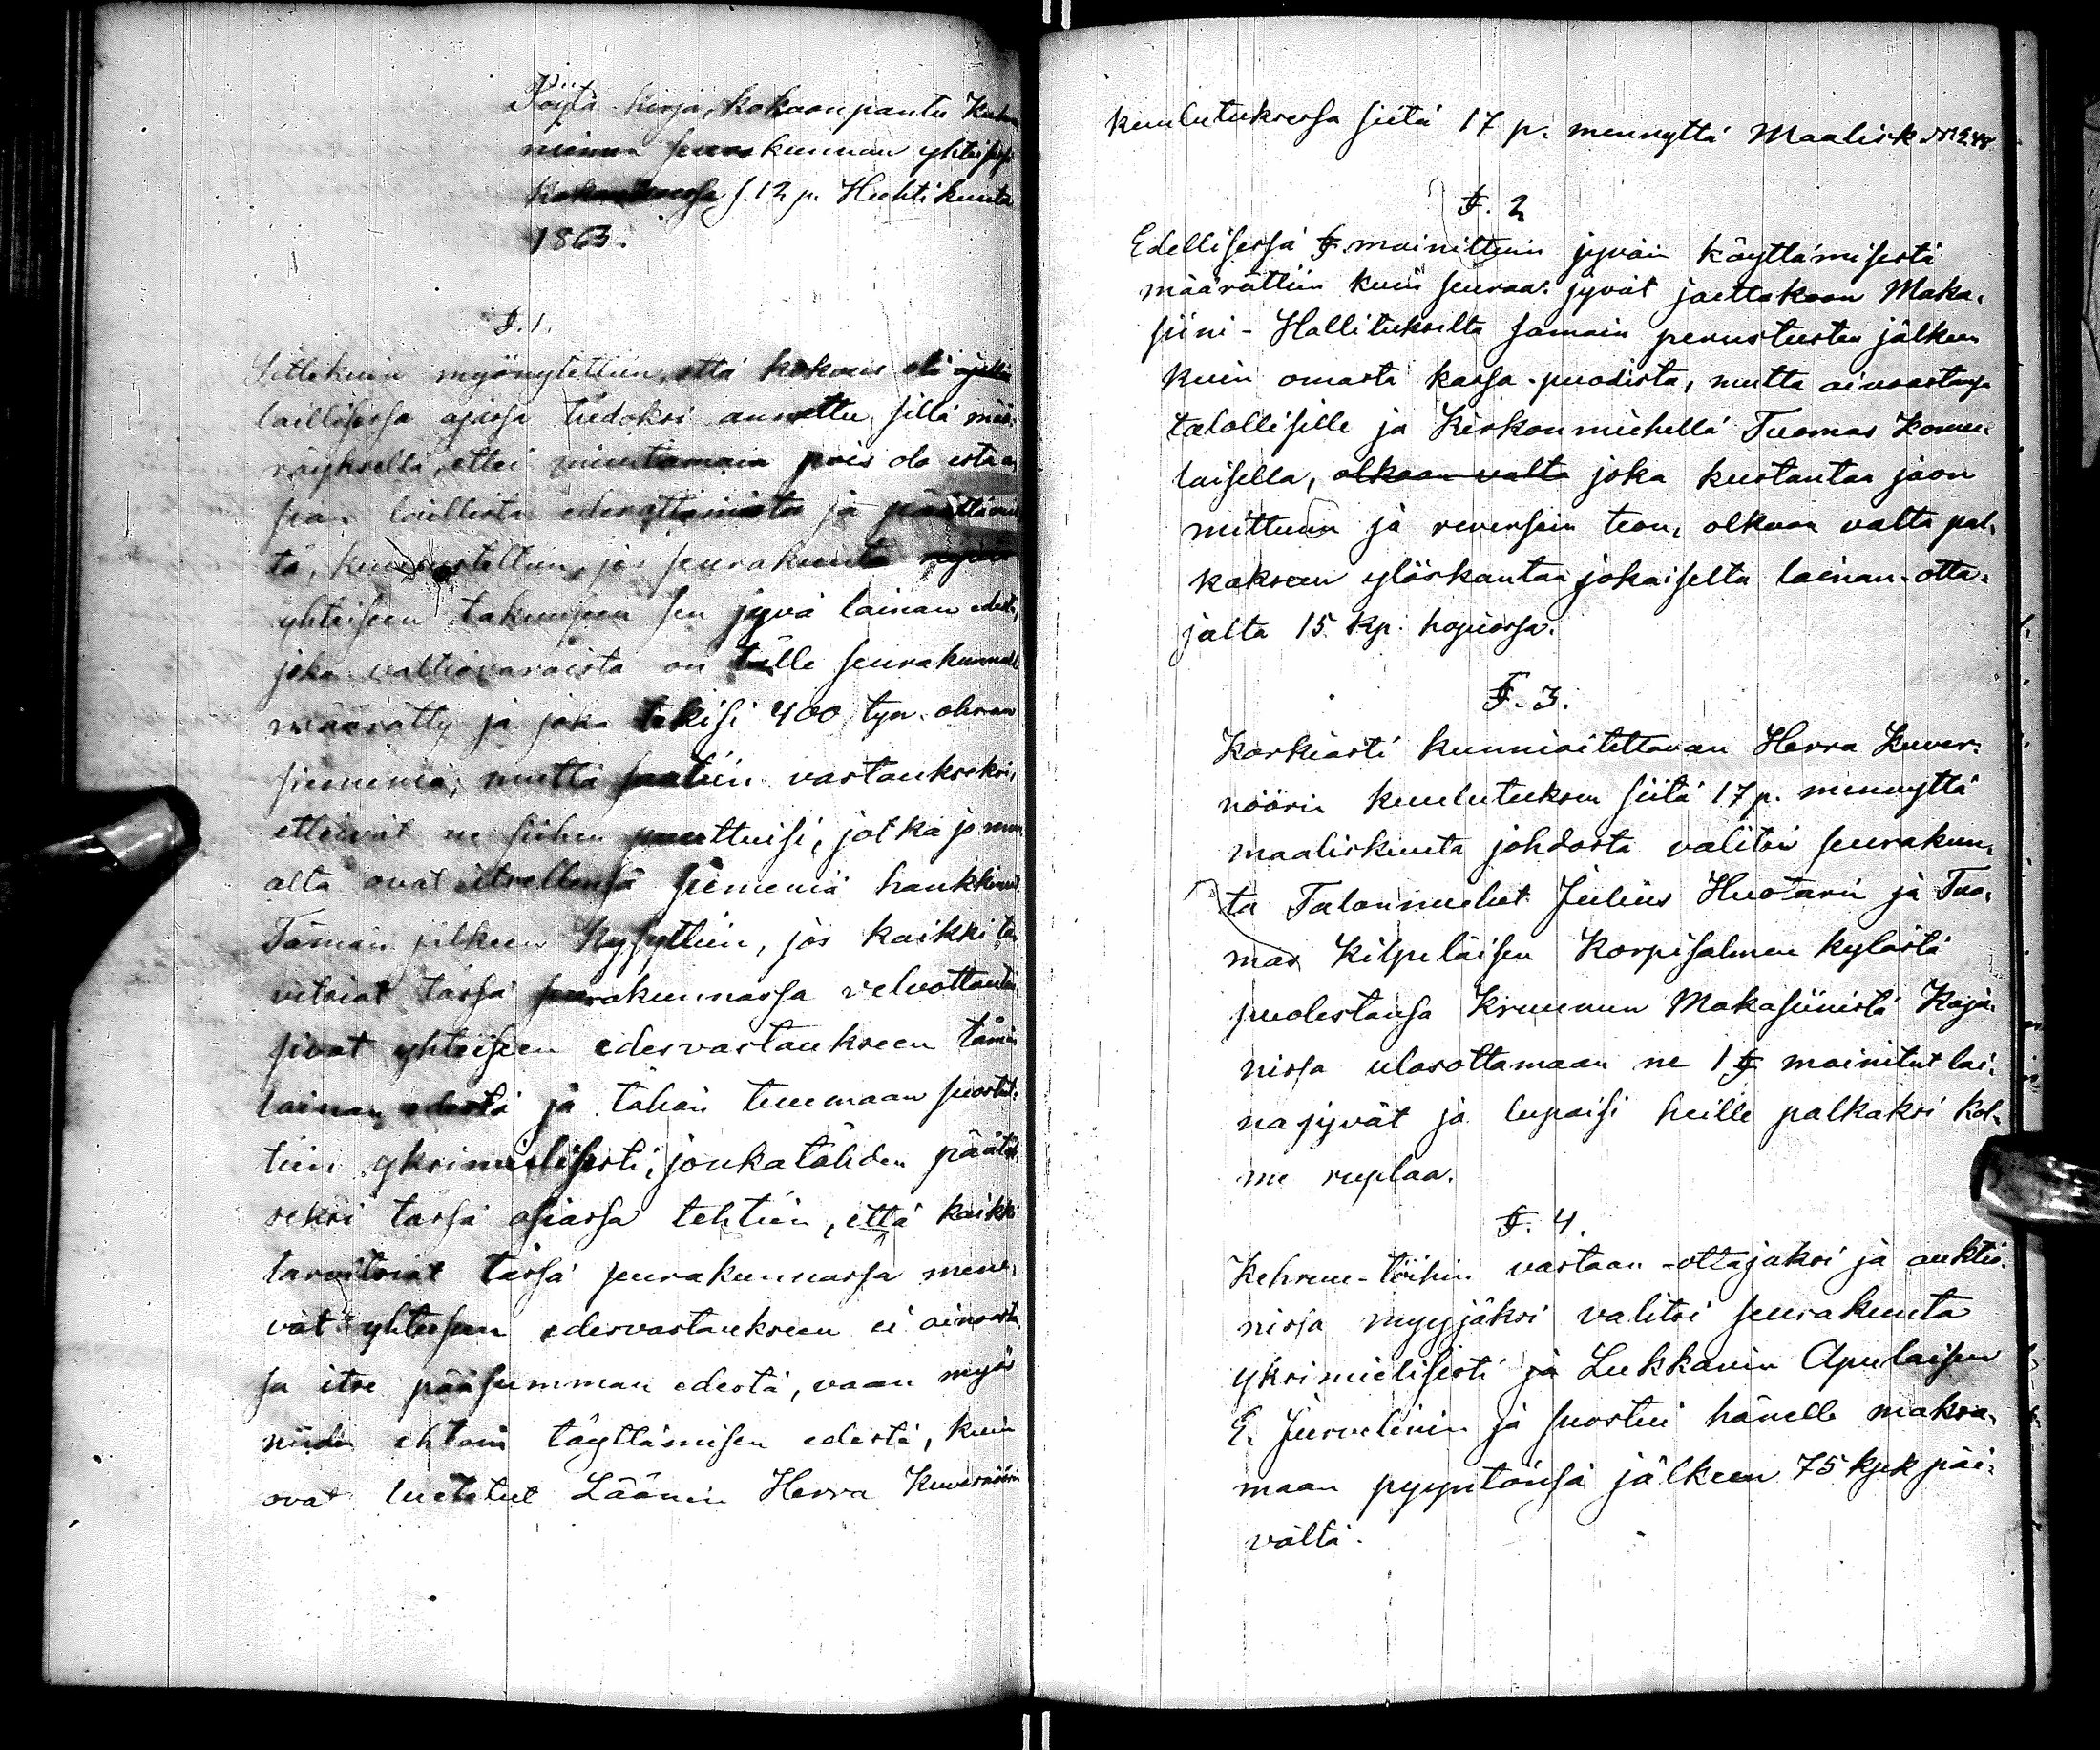 Pöytä kirja, kokoonpantu Kuh
niemen seurakunnan yhteisesä
Kokouksessa s. 12 p. Huhtikuuta
1863.
§. 1.
Sittekuin myönnytettiin, että kokous oli
laillisessa ajassa tiedoksi annettu sillä mää-
räyksellä, ettei muutamain pois olo estä a
sian laillista edesottamista ja päättämis
tä, kuulusteltiin, jos seurakunta
yhteiseen takuuseen sen jyvä lainan edest,
joka valtiovaroista on tälle seurakunnalle
määrätty ja joka tekisi 400 tyn. ohran
siemeniä; mutta saatiin vastaukseksi,
etteivät ne siihen puuttuisi, jotka jo muu
alta ovat itsellensä siemeniä hankkineet
Tämän jälkeen Kysyttiin, jos kaikki tar
vitsiat tässä seurakunnassa velvottautui
sivat yhteiseen edesvastaukseen tämän
lainan edestä ja tähän tulemaan suostut-
tiin yksimielisesti, jonkatähden päätök-
seksi tässä asiassa tehtiin, että kaikki
tarvitsiat tässä seurakunnassa mene-
vät yhteiseen edesvastaukseen ei ainoasta
sa itse pääsumman edestä, vaan myös
niiden ehtoin täyttämisen edestä, kuin
ovat luetelut Läänin Herra Kuvernöörin
kuulutuksessa siitä 17 p. mennyttä Maalisk. N 248
§. 2
Edellisessä §. mainittuin jyväin käyttämisestä
määrättiin kuin seuraa: jyvät jaettakoon Maka-
siini-Hallitukselta samain perustusten jälkeen
kuin omasta kassa-puodista, mutta aivoastansa
talollisille ja Kirkonmiehellä Tuomas Komu-
laisella, olkoon valta joka kustantaa jaon
mittuun ja reversein teon, olkoon valta pal-
kakseen ylöskantaa jokaiselta lainan-otta-
jalta 15 Kp. hopiossa.
§. 3.
Korkiasti kunnioitettavan Herra Kuver-
nöörin kuulutuksen siitä 17 p. mennyttä
maaliskuuta johdosta valitsi seurakun-
ta Talonmiehet Julius Huotarin ja Tuo-
mas Kilpeläisen Korpisalmen kylästä
puolestansa Kruunun Makasiinistä Kaja-
nissa ulosottamaan ne 1 § mainitut lai-
najyvät ja lupaisi heille palkaksi kol-
me ruplaa.
§. 4.
Kehruu-töihin vastaan-ottajaksi ja auktio-
nissa myyjäksi valitsi seurakunta
yksimielisesti ja Lukkarin Apulaisen
E. Jurvelinin ja suostui hänelle maksa-
maan pyyntönsä jälkeen 75 kpk päi-
vältä.